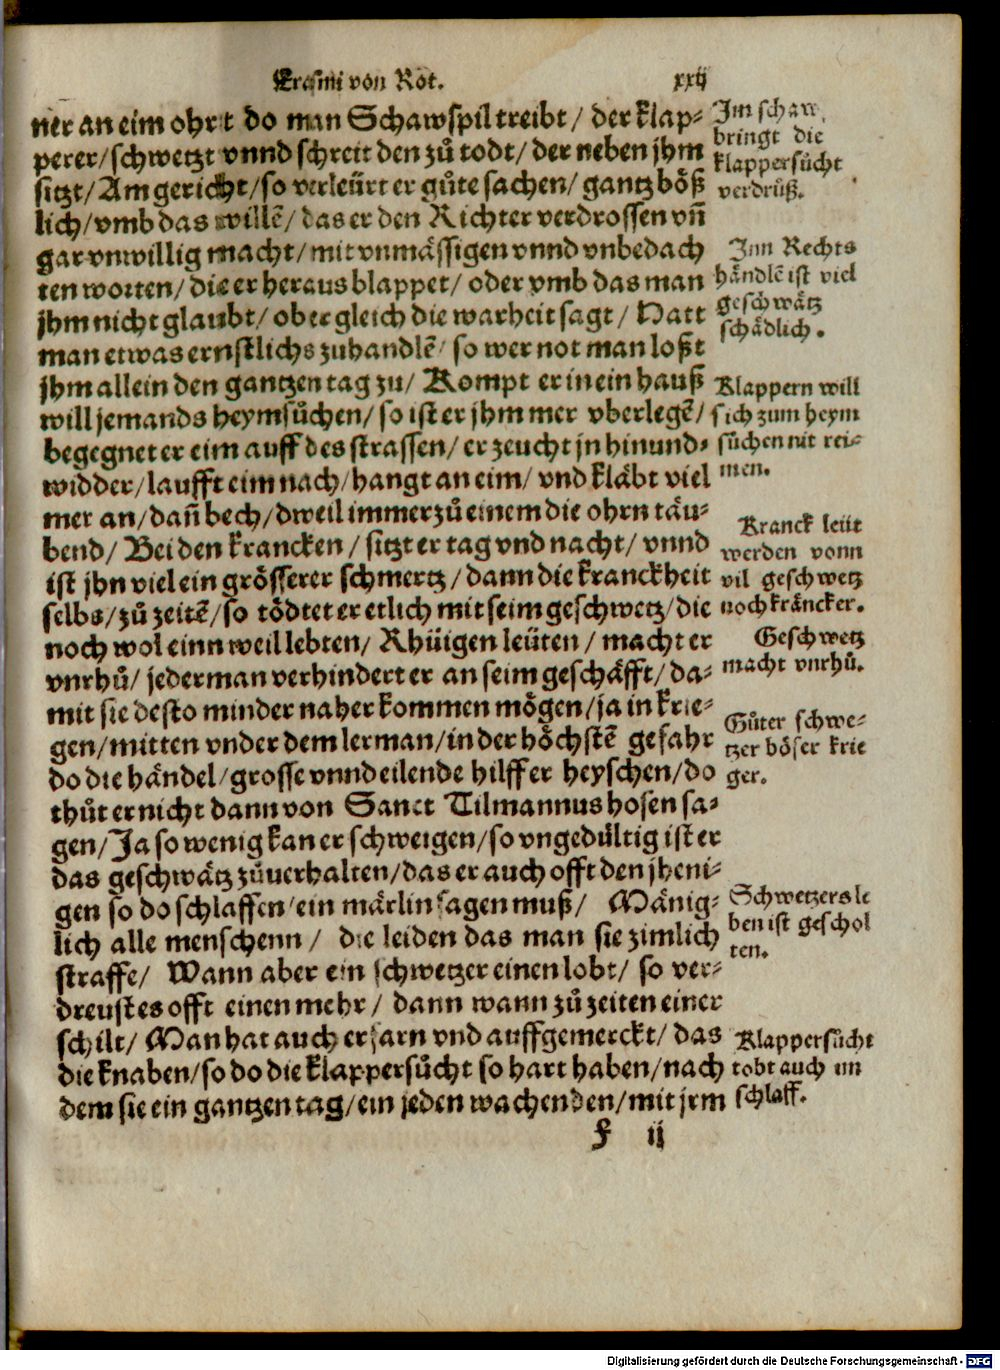 Erasmi von Rot.
xxij
ner an eim ohrt do man Schawspil treibt / der klap-
perer / schwetzt vnnd schreit den zů todt / der neben jhm
sitzt / Am gericht / so verleürt er gůte sachen / gantz bößlich / vmb das willẽ / das er den Richter verdrossen vñ
gar vnwillig macht / mit vnmässigen vnnd vnbedach
ten worten / die er heraus blappet / oder vmb das man
jhm nicht glaubt / ober gleich die warheit sagt / Hatt
man etwas ernstlichs zuhandlẽ / so wer not man loßt
jhm allein den gantzen tag zu / Kompt er in ein hauß
will jemands heymsůchen / so ist er jhm mer vberlegẽ /
begegnet er eim auff des strassen / er zeucht jn hinund-
widder / laufft eim nach / hangt an eim / vnd kläbt viel
mer an / dañ bech / dweil immerzů einem die ohrn täu-
bend / Bei den krancken / sitzt er tag vnd nacht / vnnd
ist jhn viel ein grösserer schmertz / dann die kranckheit
selbs / zů zeitẽ / so tödtet er etlich mit seim geschwetz / die
noch wol einn weil lebten / Rhüigen leüten / macht er
vnrhů / jederman verhindert er an seim geschäfft / da-
mit sie desto minder naher kommen mögen / ja in krie-
gen / mitten vnder dem lerman / in der höchstẽ gefahr
do die händel / grosse vnnd eilende hilff er heyschen / do
thůt er nicht dann von Sanct Tilmannus hosen sa-
gen / Ja so wenig kan er schweigen / so vngedültig ist er
das geschwätz zůuerhalten / das er auch offt den jheni-
gen so do schlaffen / ein märlin sagen muß / Mänig-
lich alle menschenn / die leiden das man sie zimlich
straffe / Wann aber ein schwetzer einen lobt / so ver-
dreust es offt einen mehr / dann wann zů zeiten einer
schilt / Man hat auch erfarn vnd auffgemerckt / das
die knaben / so do die klappersůcht so hart haben / nach
dem sie ein gantzen tag / ein jeden wachenden / mit jrm
f ij
Im schaw
bringt die
klappersůcht
verdrüß.
Inn Rechts
händlẽ ist viel
geschwätz
schädlich.
Klappern will
sich zum heym
sůchen nit rei-
men.
Kranck leüt
werden vonn
vil geschwetz
noch kräncker.
Geschwetz
macht vnrhů.
Gůter schwe-
tzer böser krie
ger.
Schwetzers le
ben ist geschol
ten.
Klappersůcht
tobt auch im
schlaff.
Digitalisierung gefördert durch die Deutsche Forschungsgemeinschaft - DFG